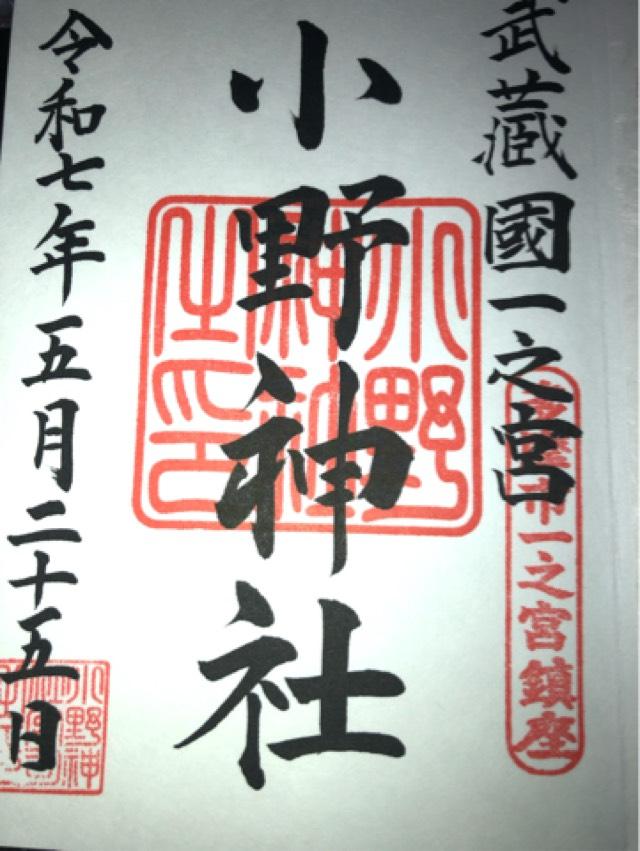 武蔵國一之宮
多摩市一之宮鎮座
小野神社
小野神社之印
令和七年五月二十五日
小野神